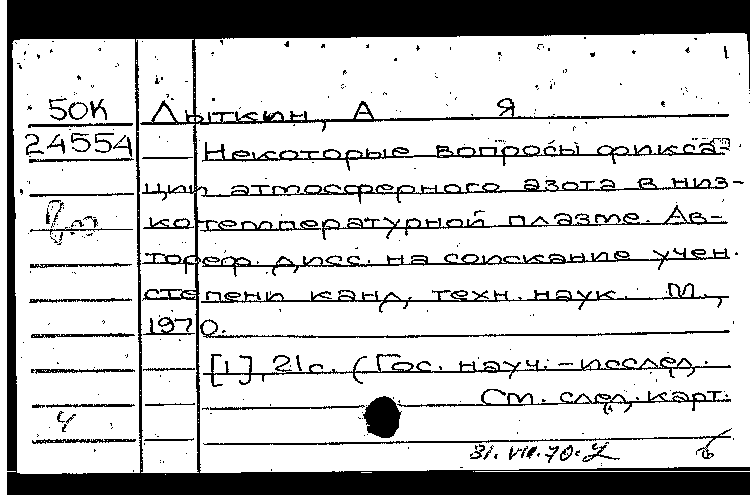 50К Лыткин, А Я
24554 Некоторые вопросы фикса-
ции атмосферного азота в низ-
котемпературной плазме. Ав-
тореф. дисс. на соискание учен.
степени канд, техн. наук. М.,
1970.
[1], 21с. (Гос. науч.-исслед.
См. след. карт.
4
31.VII.70.